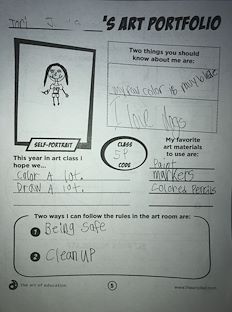 'S ART PORTFOLIO
Two things you should
know about me are:
my fav color is
I love dogs
SELF-PORTRAIT
CLASS
CODE
This year in art class I
hope we...
Color A lot.
Draw A lot.
My favorite
art materials
to use are:
Paint
markers
Colored Pencils
Two ways I can follow the rules in the art room are:
1 Being Safe
2 Clean UP
the art of education
5